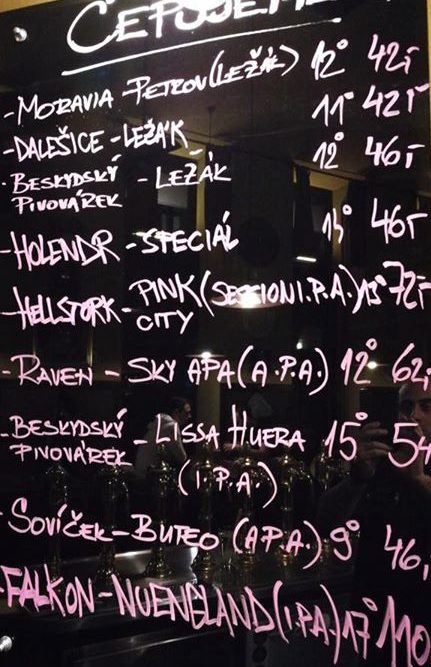 ČEPUJEME
-MORAVIA -PETROV (LEŽÁK) 12° 42,-
-DALEŠICE -LEŽÁK 11° 42,-
-BESKYDSKÝ - LEŽÁK 12° 46,-
PIVOVÁREK
-HOLENDR -SPECIÁL 13° 46,-
-HELLSTORK- PINK (SESSION I.P.A.) 13° 72,-
CITY
-RAVEN - SKY APA (A.P.A.) 12° 62,-
-BESKYDSKÝ - LISSÁ HUERA 15° 54
PIVOVÁREK
(I.P.A.)
-SOVÍČEK-BUTEO (A.P.A.) 9° 46,-
-FALKON-NUENGLAND (I.P.A.) 17° 110